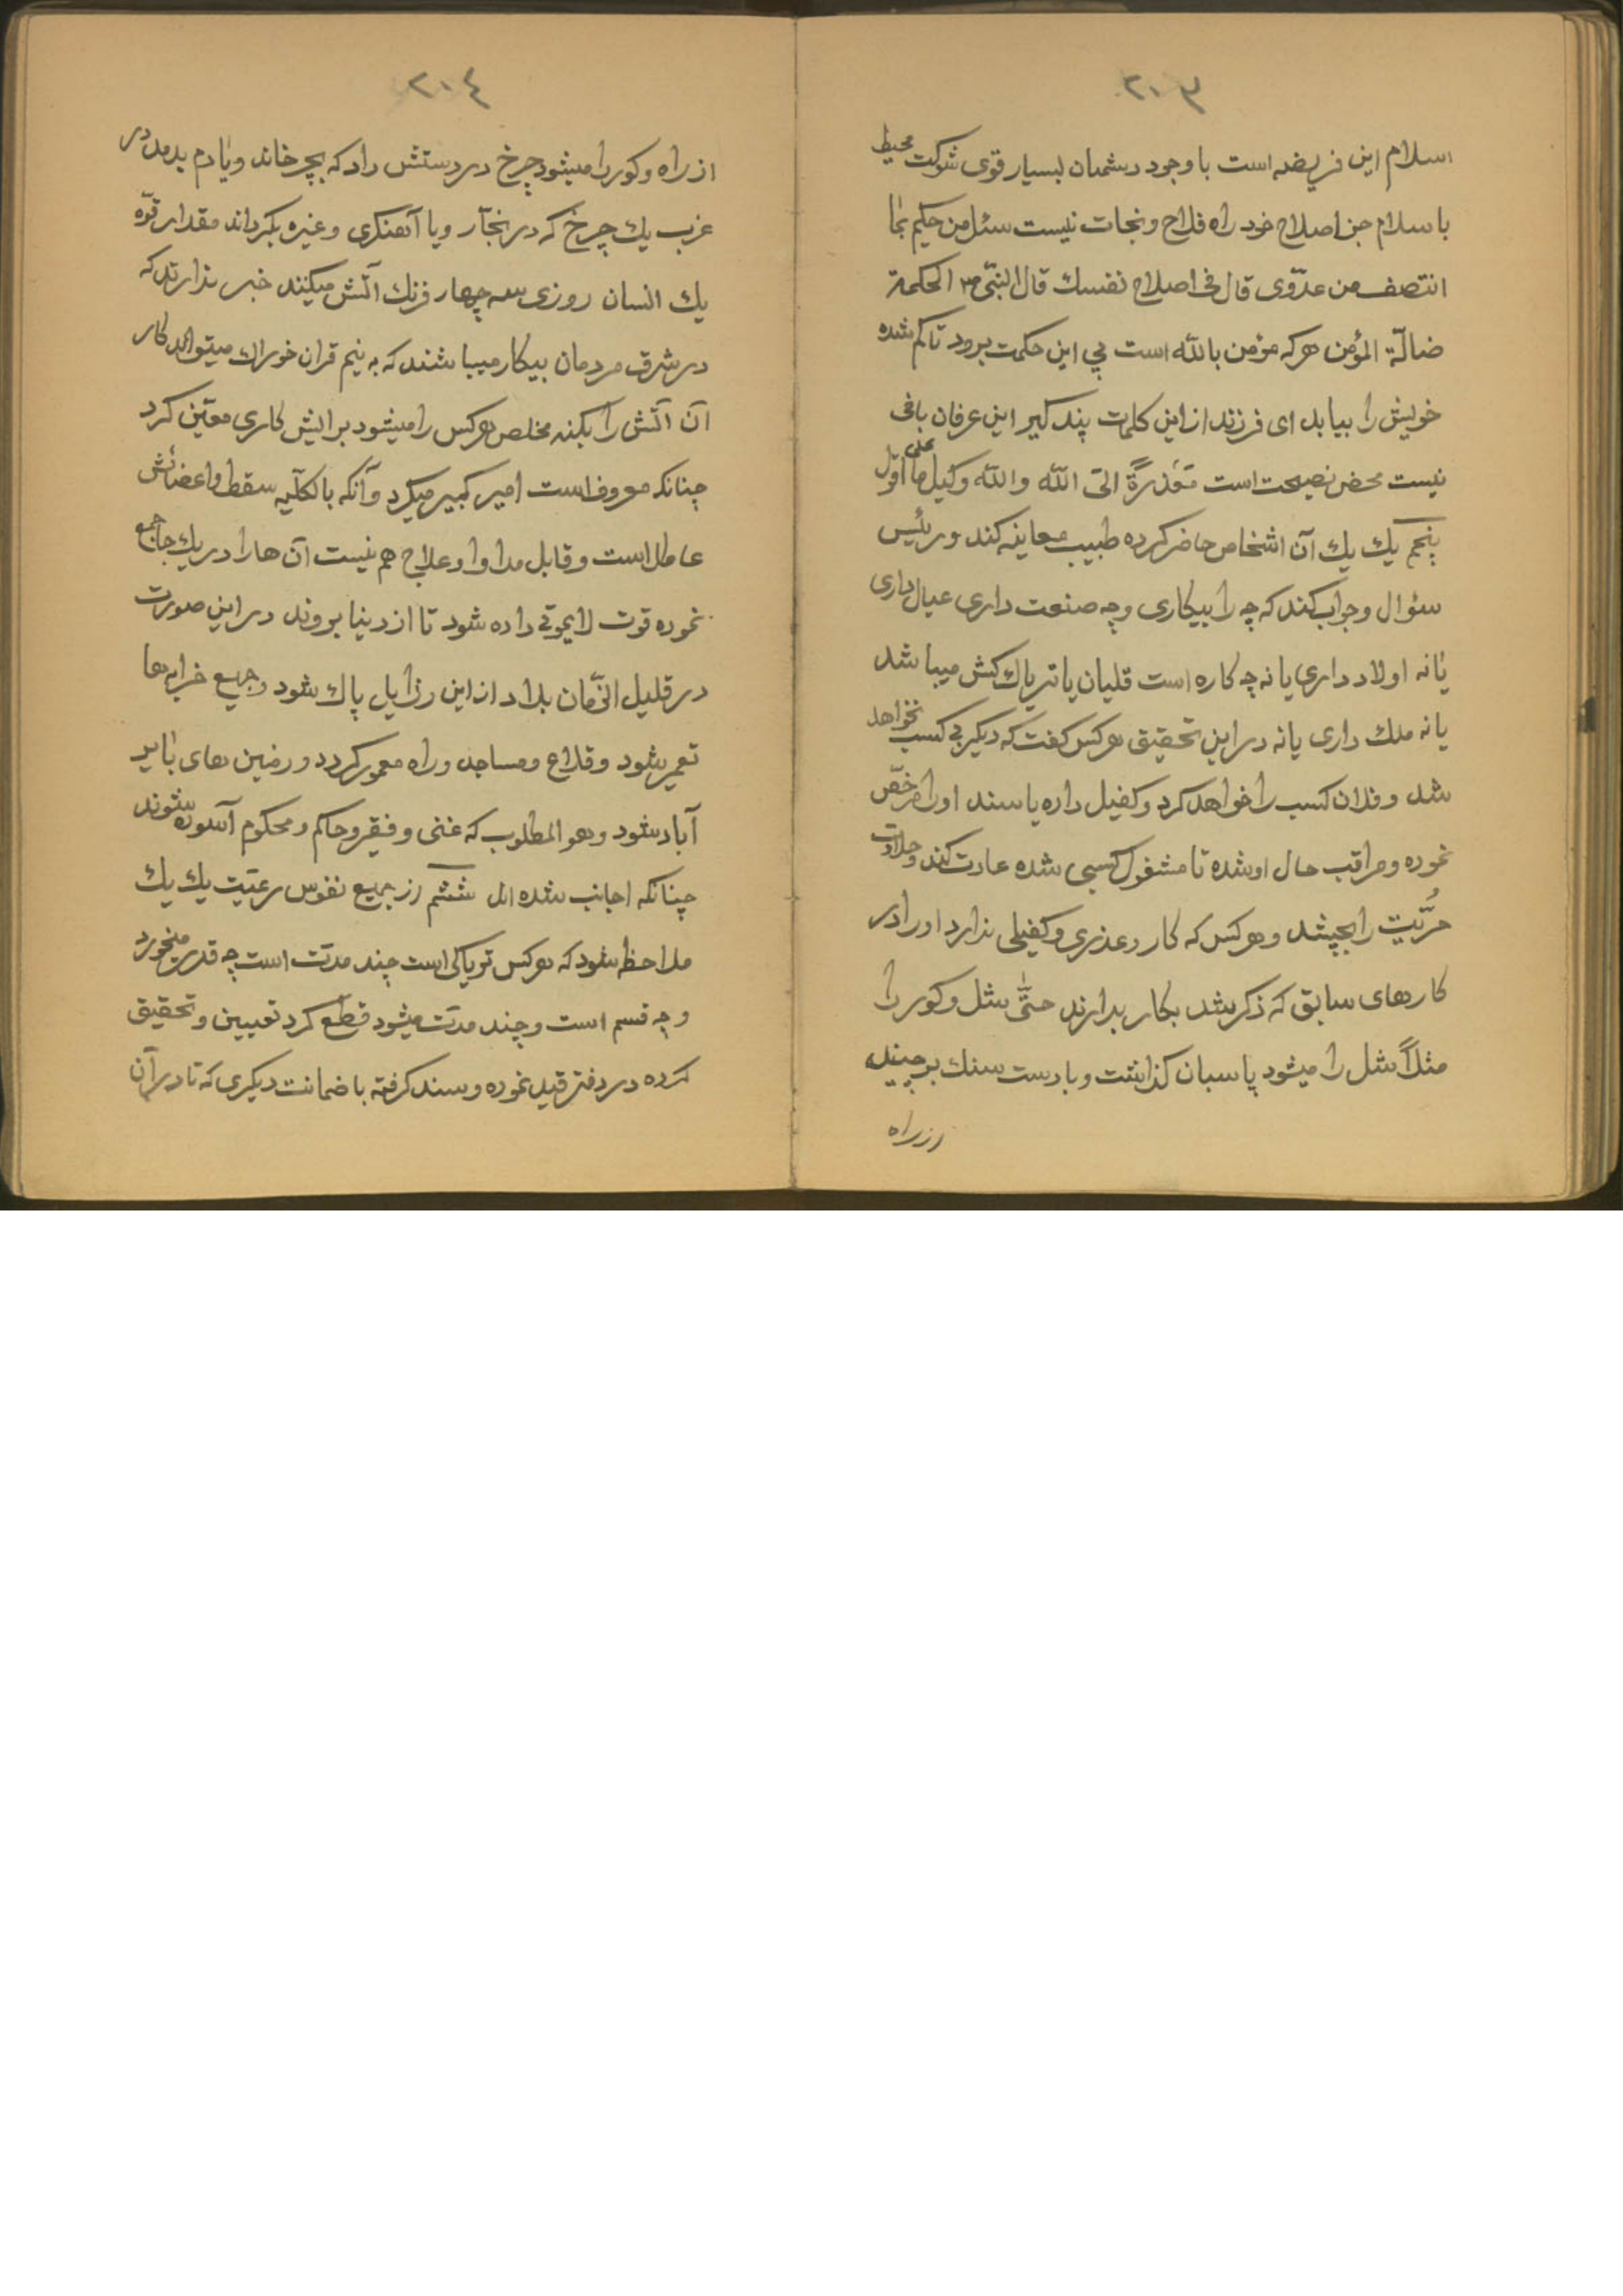 ۲۰۳
اسلام این فریضه است با وجود دشمنان بسیار قوی شوکت محیط
باسلام جز اصلاح خود راه فلاح و نجات نیست سئل من حکیم بما
انتصف من عدوّی قال فی اصلاح نفسك قال النبیّ ص الحکمة
ضالّة المؤمن هر که مؤمن بالله است پی این حکمت برود تا کم شده
خویش را بیابد ای فرزند از این کلمات پند کیر این عرفان بافی
نیست محض نصیحت است مَعْذرةً الیٰ الله والله وکیل علی ما اقول
پنجم یك یك آن اشخاص حاضر کرده طبیب معاینه کند و رئیس
سئوال و جواب کند که چرا بیکاری و چه صنعت داری عیال داری
یانه اولاد داری یا نه چه کاره است قلیان یا تریاك کش میباشد
یا نه ملك داری یا نه در این تحقیق هر کس کفت که دیکر بی کسب نخواهد
شد و فلان کسب را خواهد کرد و کفیل داده یا سند او را مرخّص
نموده و مراقب حال او شده تا مشغول کسبی شده عادت کند و حلاوت
حُرّیّت را بچشد و هر کس که کار و عذری و کفیلی ندارد او را در
کارهای سابق که ذکر شد بکار بدارند حتّٰی شل و کور را
مثلاً شل را میشود پاسبان کذاشت و با دست سنك بر چیند
از راه
۲۰٤
از راه و کور را میشود چرخ در دستش داد که بچرخاند و یا دم بدمد در
غرب یك چرخ که در نجّار و یا آهنکری و غیره بکرداند مقدار قوّه
یك انسان روزی سه چهار فرنك آتش میکنند خبر ندارند که
در شرق مردمان بیکار میباشند که به نیم قران خوراك میتواند کار
آن آتش را بکند مخلص هر کس را میشود برایش کاری معیّن کرد
چنانکه معروف است امیر کبیر میکرد و آنکه بالکلّیه سقط و اعضائش
عاطل است و قابل مداوا و علاج هم نیست آن ها را در یك جا جمع
نموده قوت لایموتی داده شود تا از دنیا بروند در این صورت
در قلیل الزّمان بلاد از این رذایل پاك شود و جمیع خرابه ها
تعمیر شود و قلاع و مساجد و راه معمور کردد و زمین های بایر
آباد شود و هو المطلوب که غنی و فقیر و حاکم و محکوم آسوده شوند
چنانکه اجانب شده اند ششم از جمیع نفوس رعیّت یك یك
ملاحظه شود که هر کس تریاکی است چند مدّت است چه قدر میخورد
و چه قسم است و چند مدّت میشود قطع کرد تعیین و تحقیق
کرده در دفتر قید نموده و سند کرفته با ضمانت دیکری که تا در آن